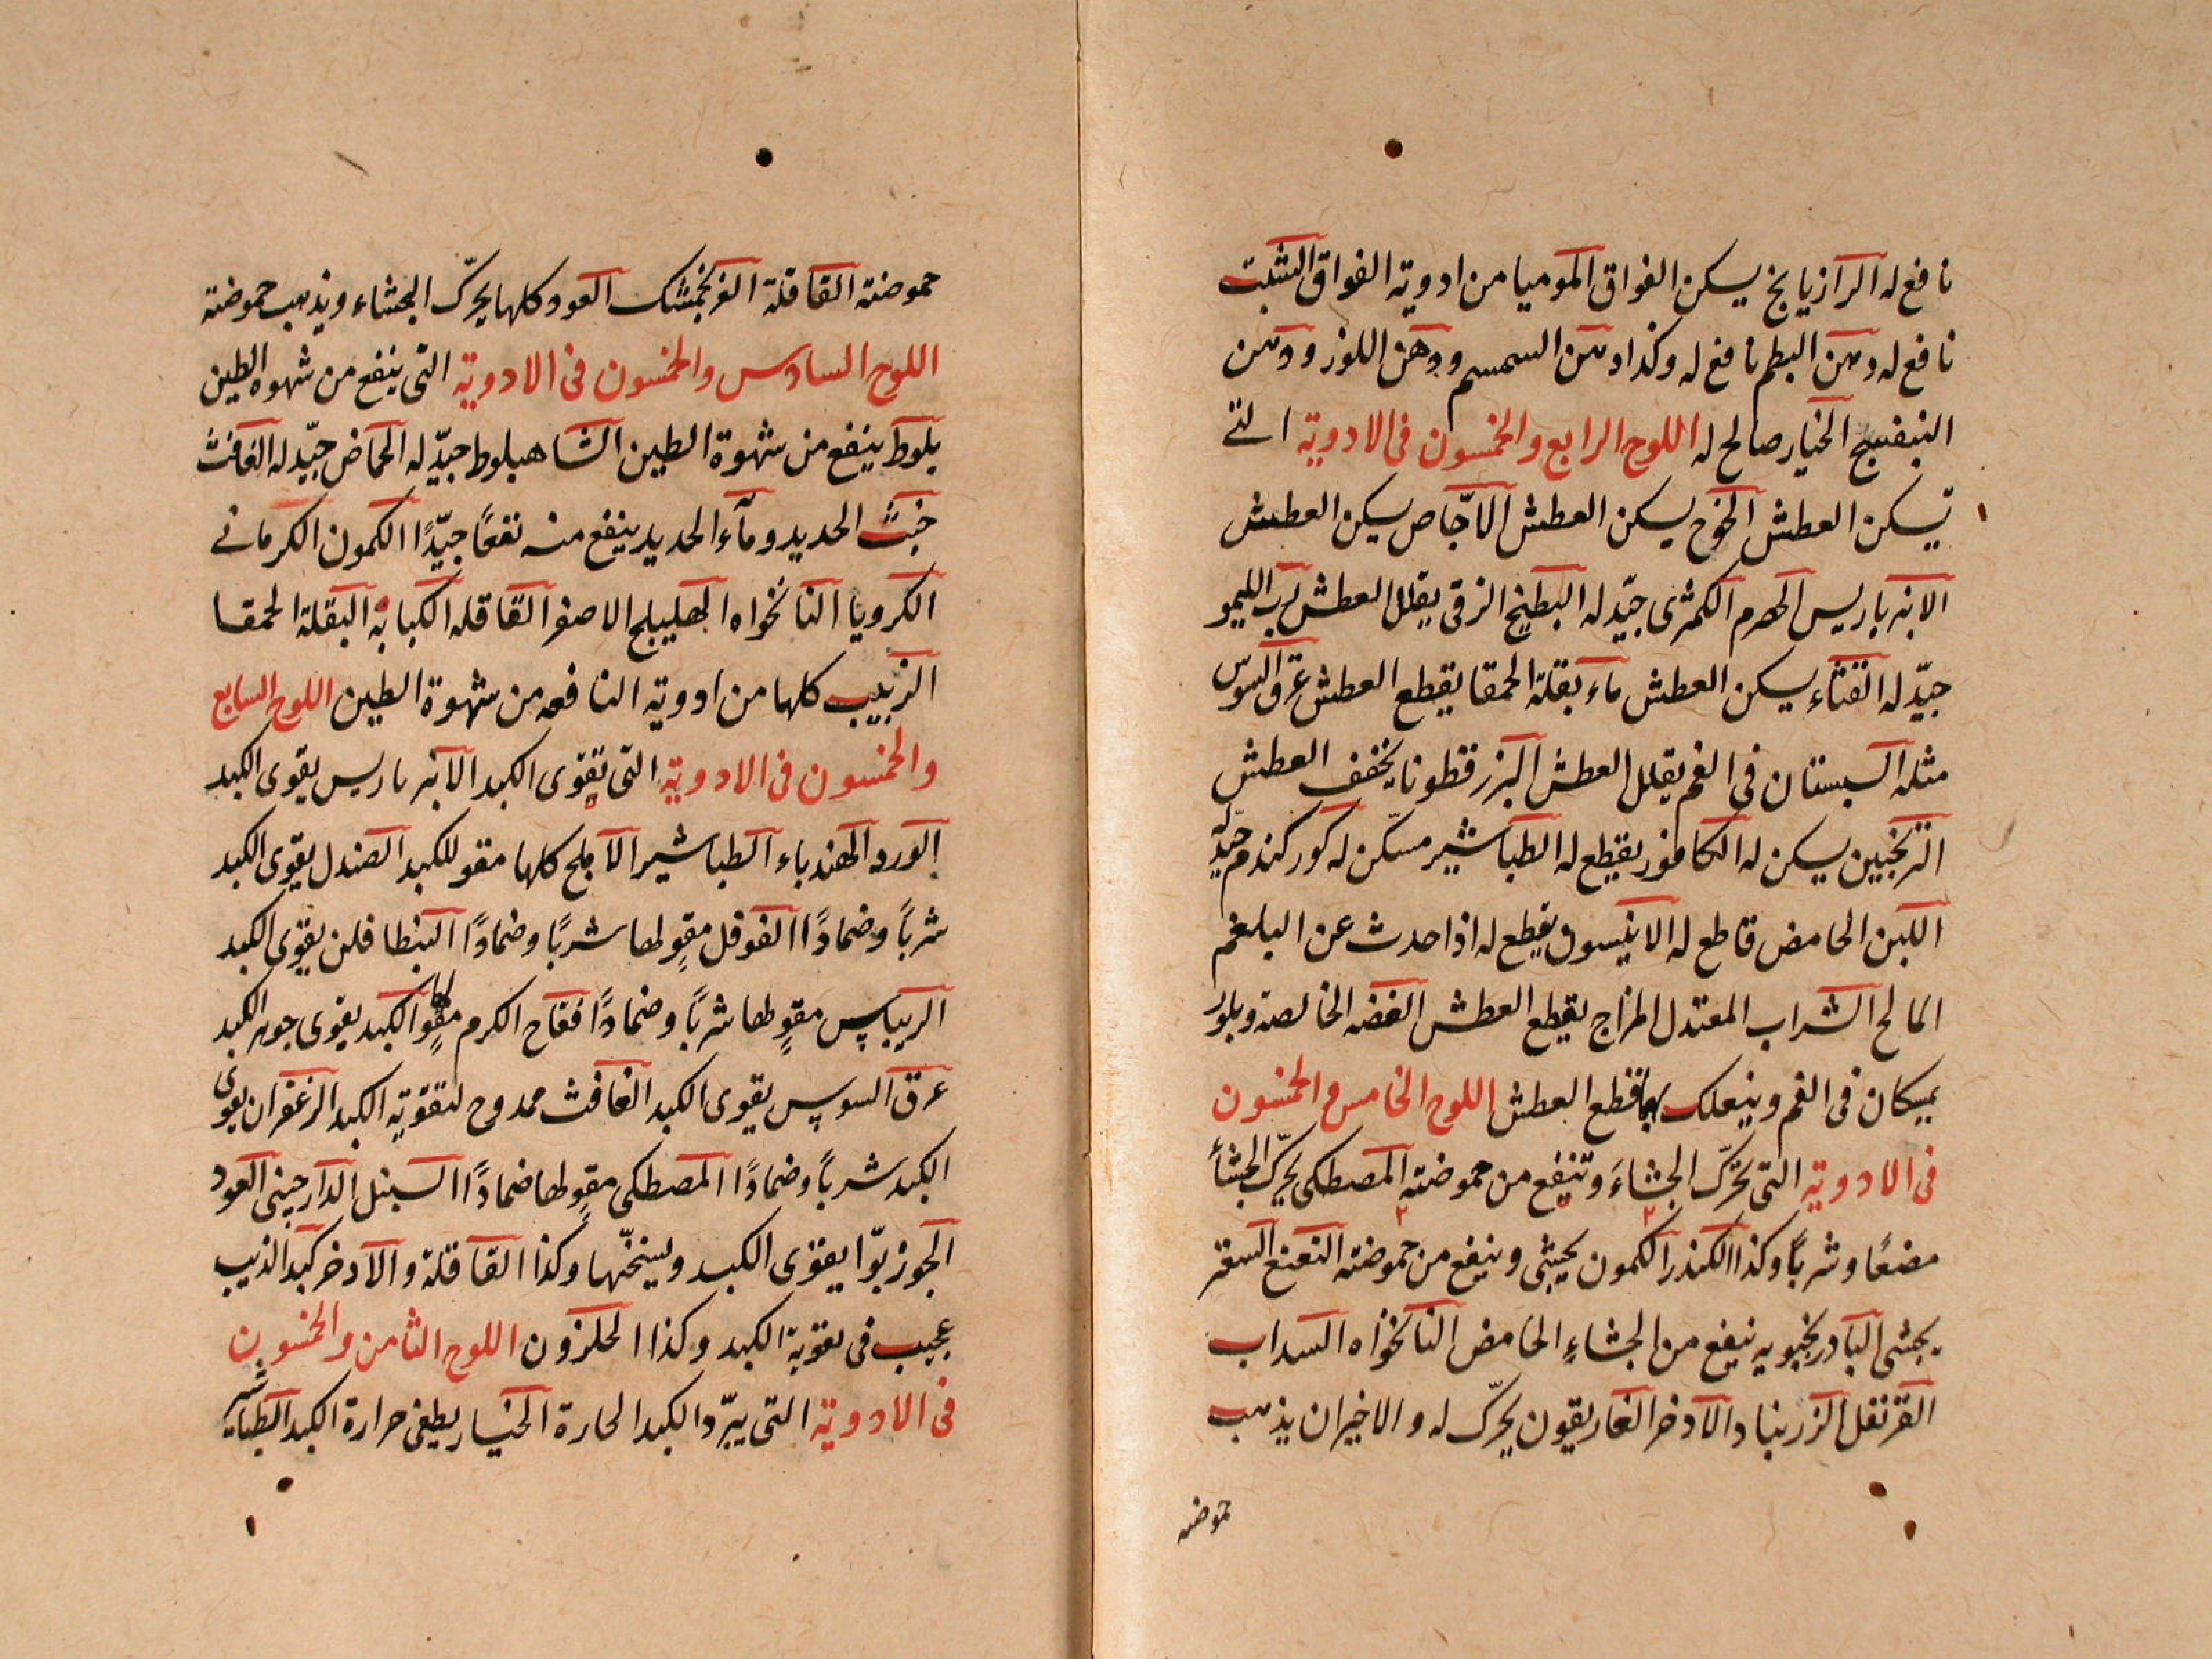 نافع له الرازيانج يسكن الفواق الموميا من ادوية الفواق الشبت
نافع له دهن البطم نافع له وكذا دهن السمسم ودهن اللوز ودهن
البنفسج الخيار صالح له اللوح الرابع والخمسون فى الادوية التى
تسكن العطش الخوخ يسكن العطش الاجّاص يسكن العطش
الانبرباريس الحصرم الكمثرى جيّد له البطيخ الزقى يقلل العطش رب الليمو
جيّد له القثاء يسكن العطش ماء بقلة الحمقا يقطع العطش عرق السوس
مثله السبستان فى الفم يقلل العطش البزرقطونا يخفف العطش
الترنجبين يسكن له الكافور يقطع له الطباشير مسكّن له كوركندم جيّد له
اللبن الحامض قاطع له الانيسون يقطع له اذا حدث عن البلغم
المالح الشراب المعتدل المزاج يقطع العطش الفضه الخالصة وبلور
يمسكان فى الفم وينعلك بهما قطع العطش اللوح الخامس والخمسون
فى الادوية التى تحرّك الجشاء وتنفع من حموضته المصطكى يحرّك الجشأ
مضغًا وشربًا وكذا الكندر الكمون يجشى وينفع من حموضته النعنع السعتر
يجشى البادرنجبويه ينفع من الجشاءِ الحامض النانخواه السداب
القرنفل الزرنباد الاذخر الغاريقون يحرّك له والاخيران يذهب
حموضته
حموضته القاقلة الفرنجمشك العود كلها يحرّك الجشاء ويذهب حموضته
اللوح السادس والخمسون فى الادوية التى ينفع من شهوه الطين
بلوط ينفع من شهوة الطين الشاهبلوط جيّد له الحماض جيّد له الغافث
خبث الحديد وماء الحديد ينفع منه نفعًا جيّدًا الكمون الكرمانى
الكرويا النانخواه الهليلج الاصفر القاقله الكبابه البقلة الحمقا
الزبيب كلها من ادوية النافعه من شهوة الطين اللوح السابع
والخمسون فى الادوية التى تقوى الكبد الانبرباريس يقوى الكبد
الورد الهندباء الطباشير الاملج كلها مقو للكبد الصندل يقوى الكبد
شربًا وضمادًا الفوفل مقوٍ لها شربًا وضمادًا البنطافلن يقوى الكبد
الريباس مقوٍ لها شربًا وضمادًا فقاح الكرم مقوٍ لها الكبد يقوى جوهر الكبد
عرق السوس يقوى الكبد الغافث ممدوح لتقوية الكبد الزعفران يقوى
الكبد شربًا وضمادًا المصطكى مقوٍ لها ضمادًا السنبل الدارچينى العود
الجوزبوّا يقوى الكبد ويسخّنها وكذا القاقلة والاذخر كبد الذيب
عجيب فى تقوية الكبد وكذا الحلزون اللوح الثامن والخمسون
فى الادوية التى يبرّد الكبد الحارة الخيار يطفى حرارة الكبد الطباشير